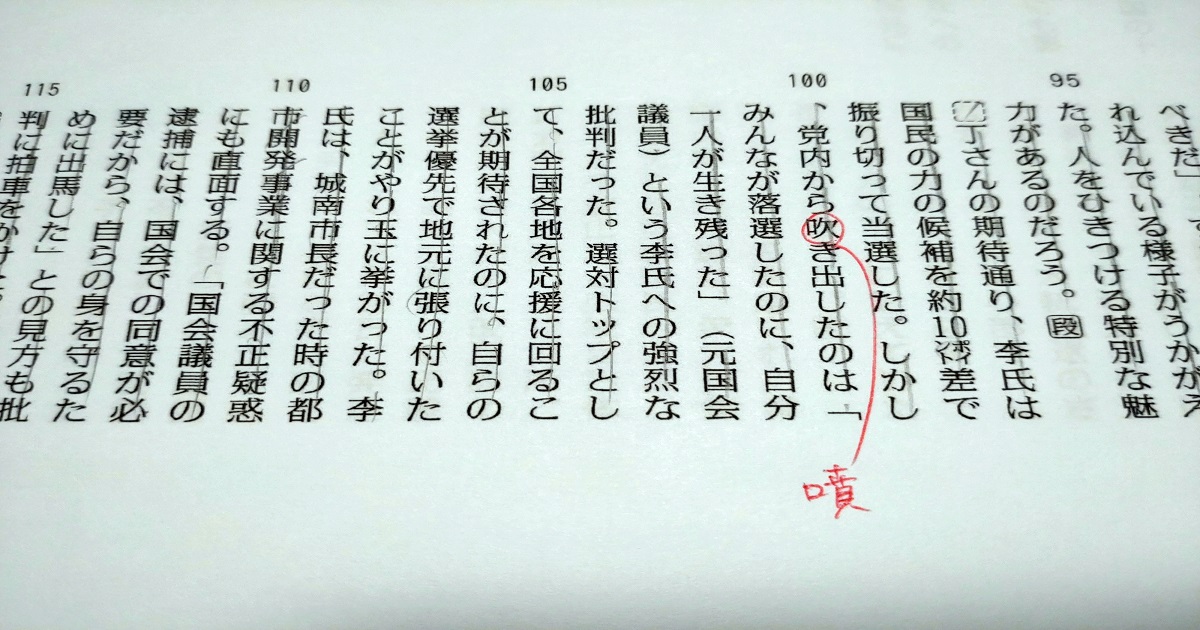 95
100
105
110
115
べきだ」
れ込んでいる様子がうかがえ
た。人をひきつける特別な魅
力があるのだろう。段
丁さんの期待通り、李氏は
国民の力の候補を約10ポイント差で
振り切って当選した。しかし
、党内から吹き出したのは「
みんなが落選したのに、自分
一人が生き残った」(元国会
議員)という李氏への強烈な
批判だった。選対トップとし
て、全国各地を応援に回るこ
とが期待されたのに、自らの
選挙優先で地元に張り付いた
ことがやり玉に挙がった。李
氏は、城南市長だった時の都
市開発事業に関する不正疑惑
にも直面する。「国会議員の
逮捕には、国会での同意が必
要だから、自らの身を守るた
めに出馬した」との見方も批
判に拍車をかけた。
噴